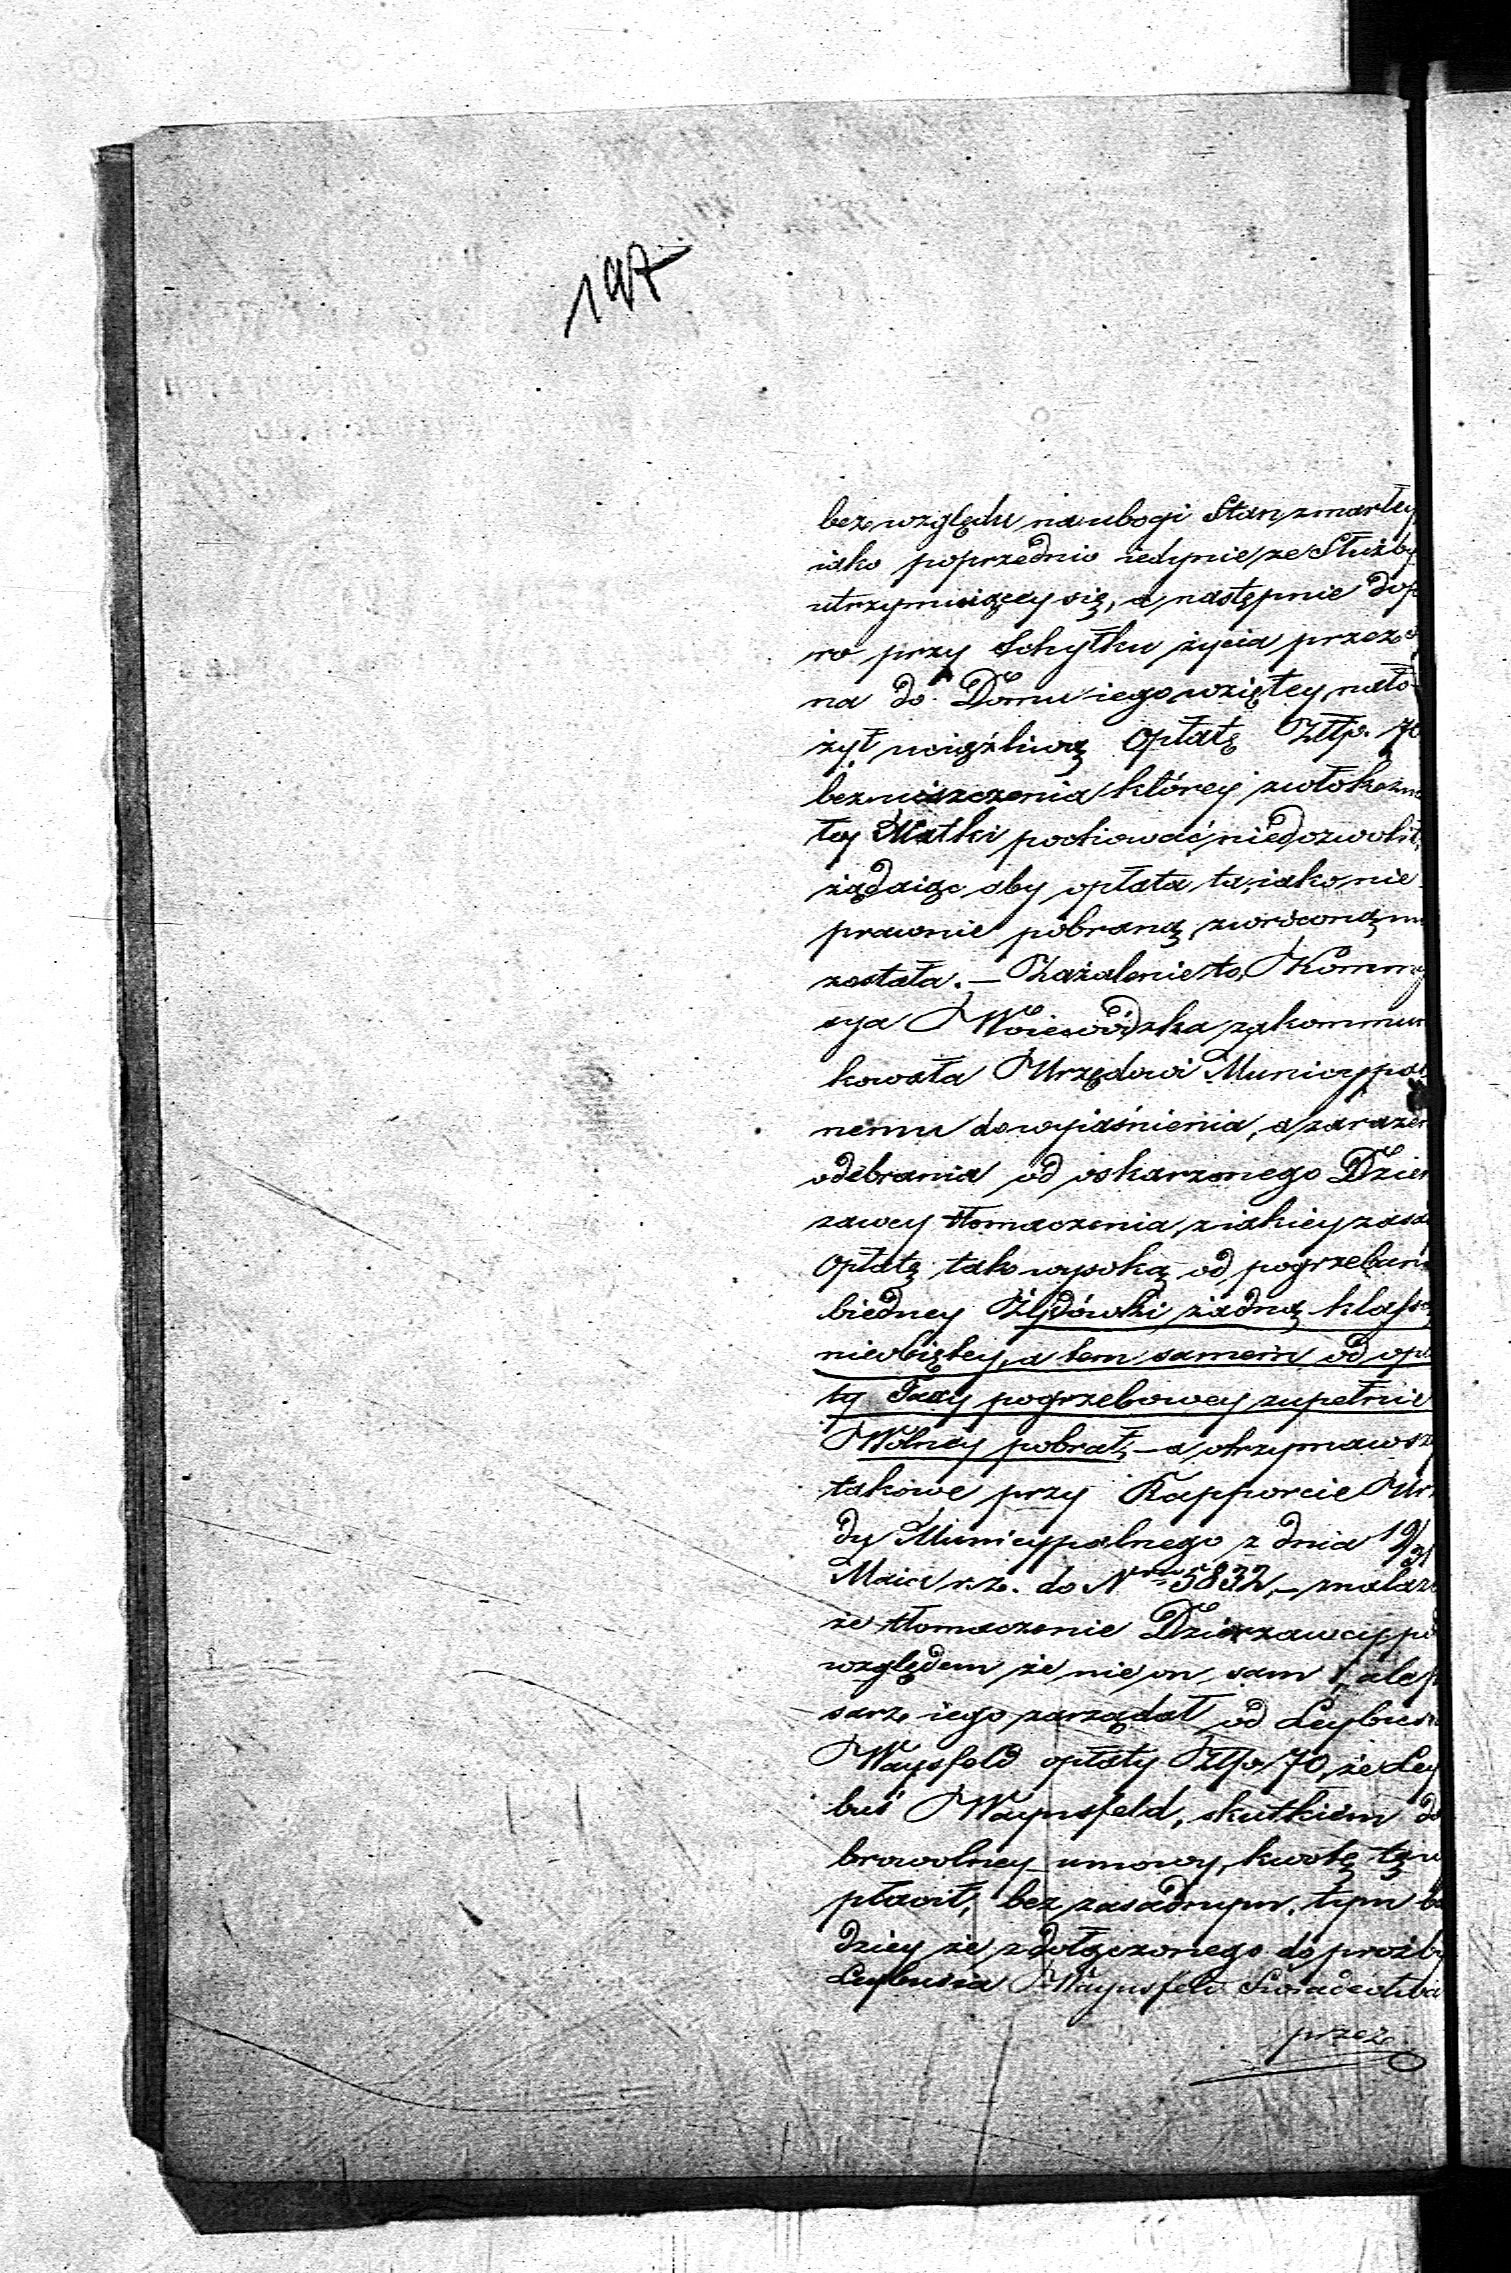 197
bez względu na ubogi Stan zmarłey
iako poprzednio iedynie ze Służby
utrzymuiącey się, a następnie dop
ro przy Schyłku życia przez
na do Domu iego wziętey, nało-
żył uciążliwą Opłatę Złłp. 70
bez uiszczenia którey zwłok zm
łey Matki pochować niedozwolił,
żądaiąc aby opłata ta, iako nie
prawnie pobraną zwróconą mu
została. – Zażalenie to Kommis
sya Woiewódzka zakommuni
kowała Urzędowi Municypal
nemu do wyiaśnienia, a zarazem
odebrania od oskarzonego Dzier
zawcy tłomaczenia, z iakiey zasa
Opłatę tak wysoką od pogrzebani
biedney Żydówki żadną klassą
nieobiętey, a tem samem od opła
ty Taxy pogrzebowey zupełnie
Wolney pobrał, – a otrzymawszy
takowe przy Rapporcie Urzę
du Municypalnego z dnia 19/31
Maia r. z. do Nru 5832, – znalazł
że tłomaczenie Dzierzawcy pod
względem że nie on sam, ale p
sarz iego zarządał od Leybusia
Waysfeld opłaty Złłp 70, że Ley
buś Waynsfeld, skutkiem do
browolney umowy, kwotę tę w
płacił, bezzasadnym, tym ba
dziey że z dołączonego do proźby
Leybusia Waynsfeld Swiadectwa
przez